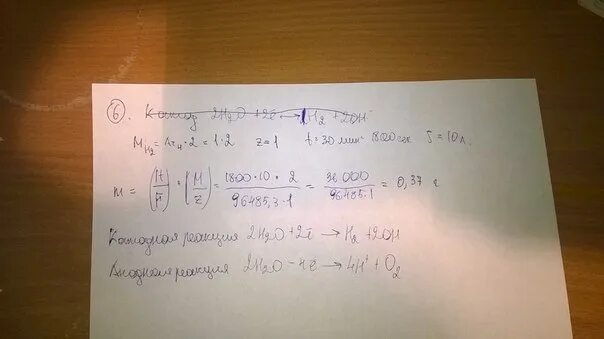 6. Катод 2H₂O + 2ē → H₂ + 2OH⁻
M H₂ = Ar H · 2 = 1·2 z=1 t = 30 мин 1800 сек J = 10 А.
m = (It/F) · (M/z) = 1800·10·2 / 96485,3·1 = 36000 / 96485·1 = 0,37 г
Катодная реакция 2H₂O + 2ē → H₂ + 2OH
Анодная реакция 2H₂O − 4ē → 4H⁺ + O₂